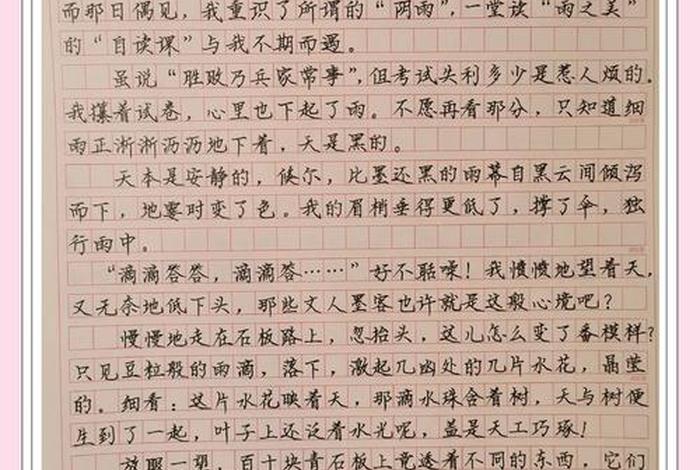 而那日偶见，我重识了所谓的“阴雨”，一堂读“雨之美”
的“自读课”与我不期而遇。
虽说“胜败乃兵家常事”，但考试失利多少是惹人烦的。
我攥着试卷，心里也下起了雨。不愿再看那分，只知道细
雨正淅淅沥沥地下着，天是黑的。
天本是安静的，倏尔，比墨还黑的雨幕自黑云间倾泻
而下，地霎时变了色。我的眉梢垂得更低了，撑了伞，独
行雨中。
“滴滴答答，滴滴答……”好不聒噪！我愤愤地望着天，
又无奈地低下头，那些文人墨客也许就是这般心境吧？
慢慢地走在石板路上，忽抬头，这儿怎么变了番模样？
只见豆粒般的雨滴，落下，激起几幽处的几片水花，晶莹
的。细看：这片水花映着天，那滴水珠含着树，天与树便
生到了一起，叶子上还泛着水光呢，盖是天工巧琢！
放眼一望，百十块青石板上竟透着不同的东西，它们